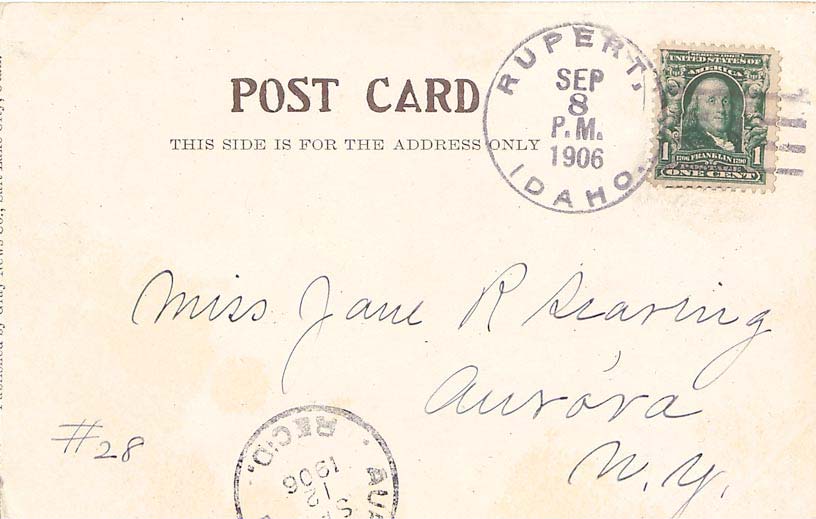 POST CARD
THIS SIDE IS FOR THE ADDRESS ONLY
RUPERT,
SEP
8
P.M.
1906
IDAHO.
SERIES 1902
UNITED STATES OF
AMERICA
1 1706 FRANKLIN 1790 1
POSTAGE
ONE CENT
Miss Jane R Searing
Aurora
N.Y.
#28
REC'D.
1906
12